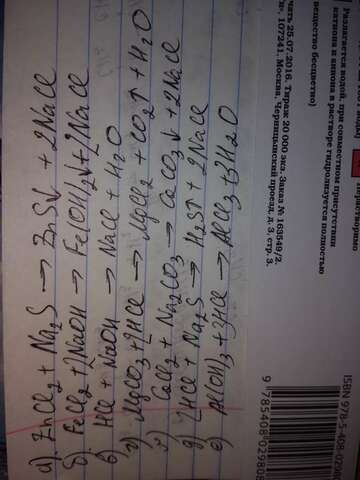 а) ZnCl₂ + Na₂S → ZnS↓ + 2NaCl
б) FeCl₂ + 2NaOH → Fe(OH)₂↓ + 2NaCl
в) HCl + NaOH → NaCl + H₂O
г) MgCO₃ + 2HCl → MgCl₂ + CO₂↑ + H₂O
г) CaCl₂ + Na₂CO₃ → CaCO₃↓ + 2NaCl
д) 2HCl + Na₂S → H₂S↑ + 2NaCl
е) Al(OH)₃ + 3HCl → AlCl₃ + 3H₂O
Разлагается водой, при совместном присутствии
катиона и аниона в растворе гидролизуется полностью
вещество бесцветно)
чать 25.07.2016. Тираж 20 000 экз. Заказ № 163549/2.
107241, Москва, Черницынский проезд, д. 3, стр. 3.
ISBN 978-5-408-0290
9 785408 029080